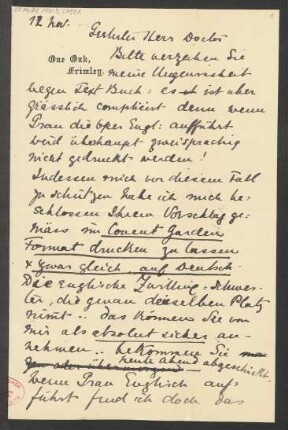 12 Nov.
Geehrter Herr Doctor
One Oak,
Frimley.
Bitte verzeihen Sie
meine Ungewissheit
wegen Text Buch: es ist aber
grässlich complicirt denn wenn
Prag die Oper Engl: aufführt
wird überhaupt zweisprachig
nicht gedruckt werden!
Indessen mich vor diesem Fall
zu schützen habe ich mich be-
schlossen Ihrem Vorschlag ge-
mäss im Covent Garden
Format drucken zu lassen
& zwar gleich auf Deutsch.
Die Englische Zwilling-Schwes-
ter, die genau dieselben Platz
nimmt .. das können Sie von
mir als absolut sicher an-
nehmen .. bekommen Sie
heute Abend abgeschickt.
Wenn Prag Englisch auf-
führt find ich doch das